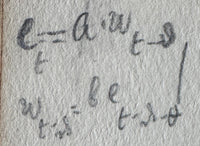 e_t = a · w_{t-ϑ}
w_{t-ϑ} = b e_{t-ϑ-θ}